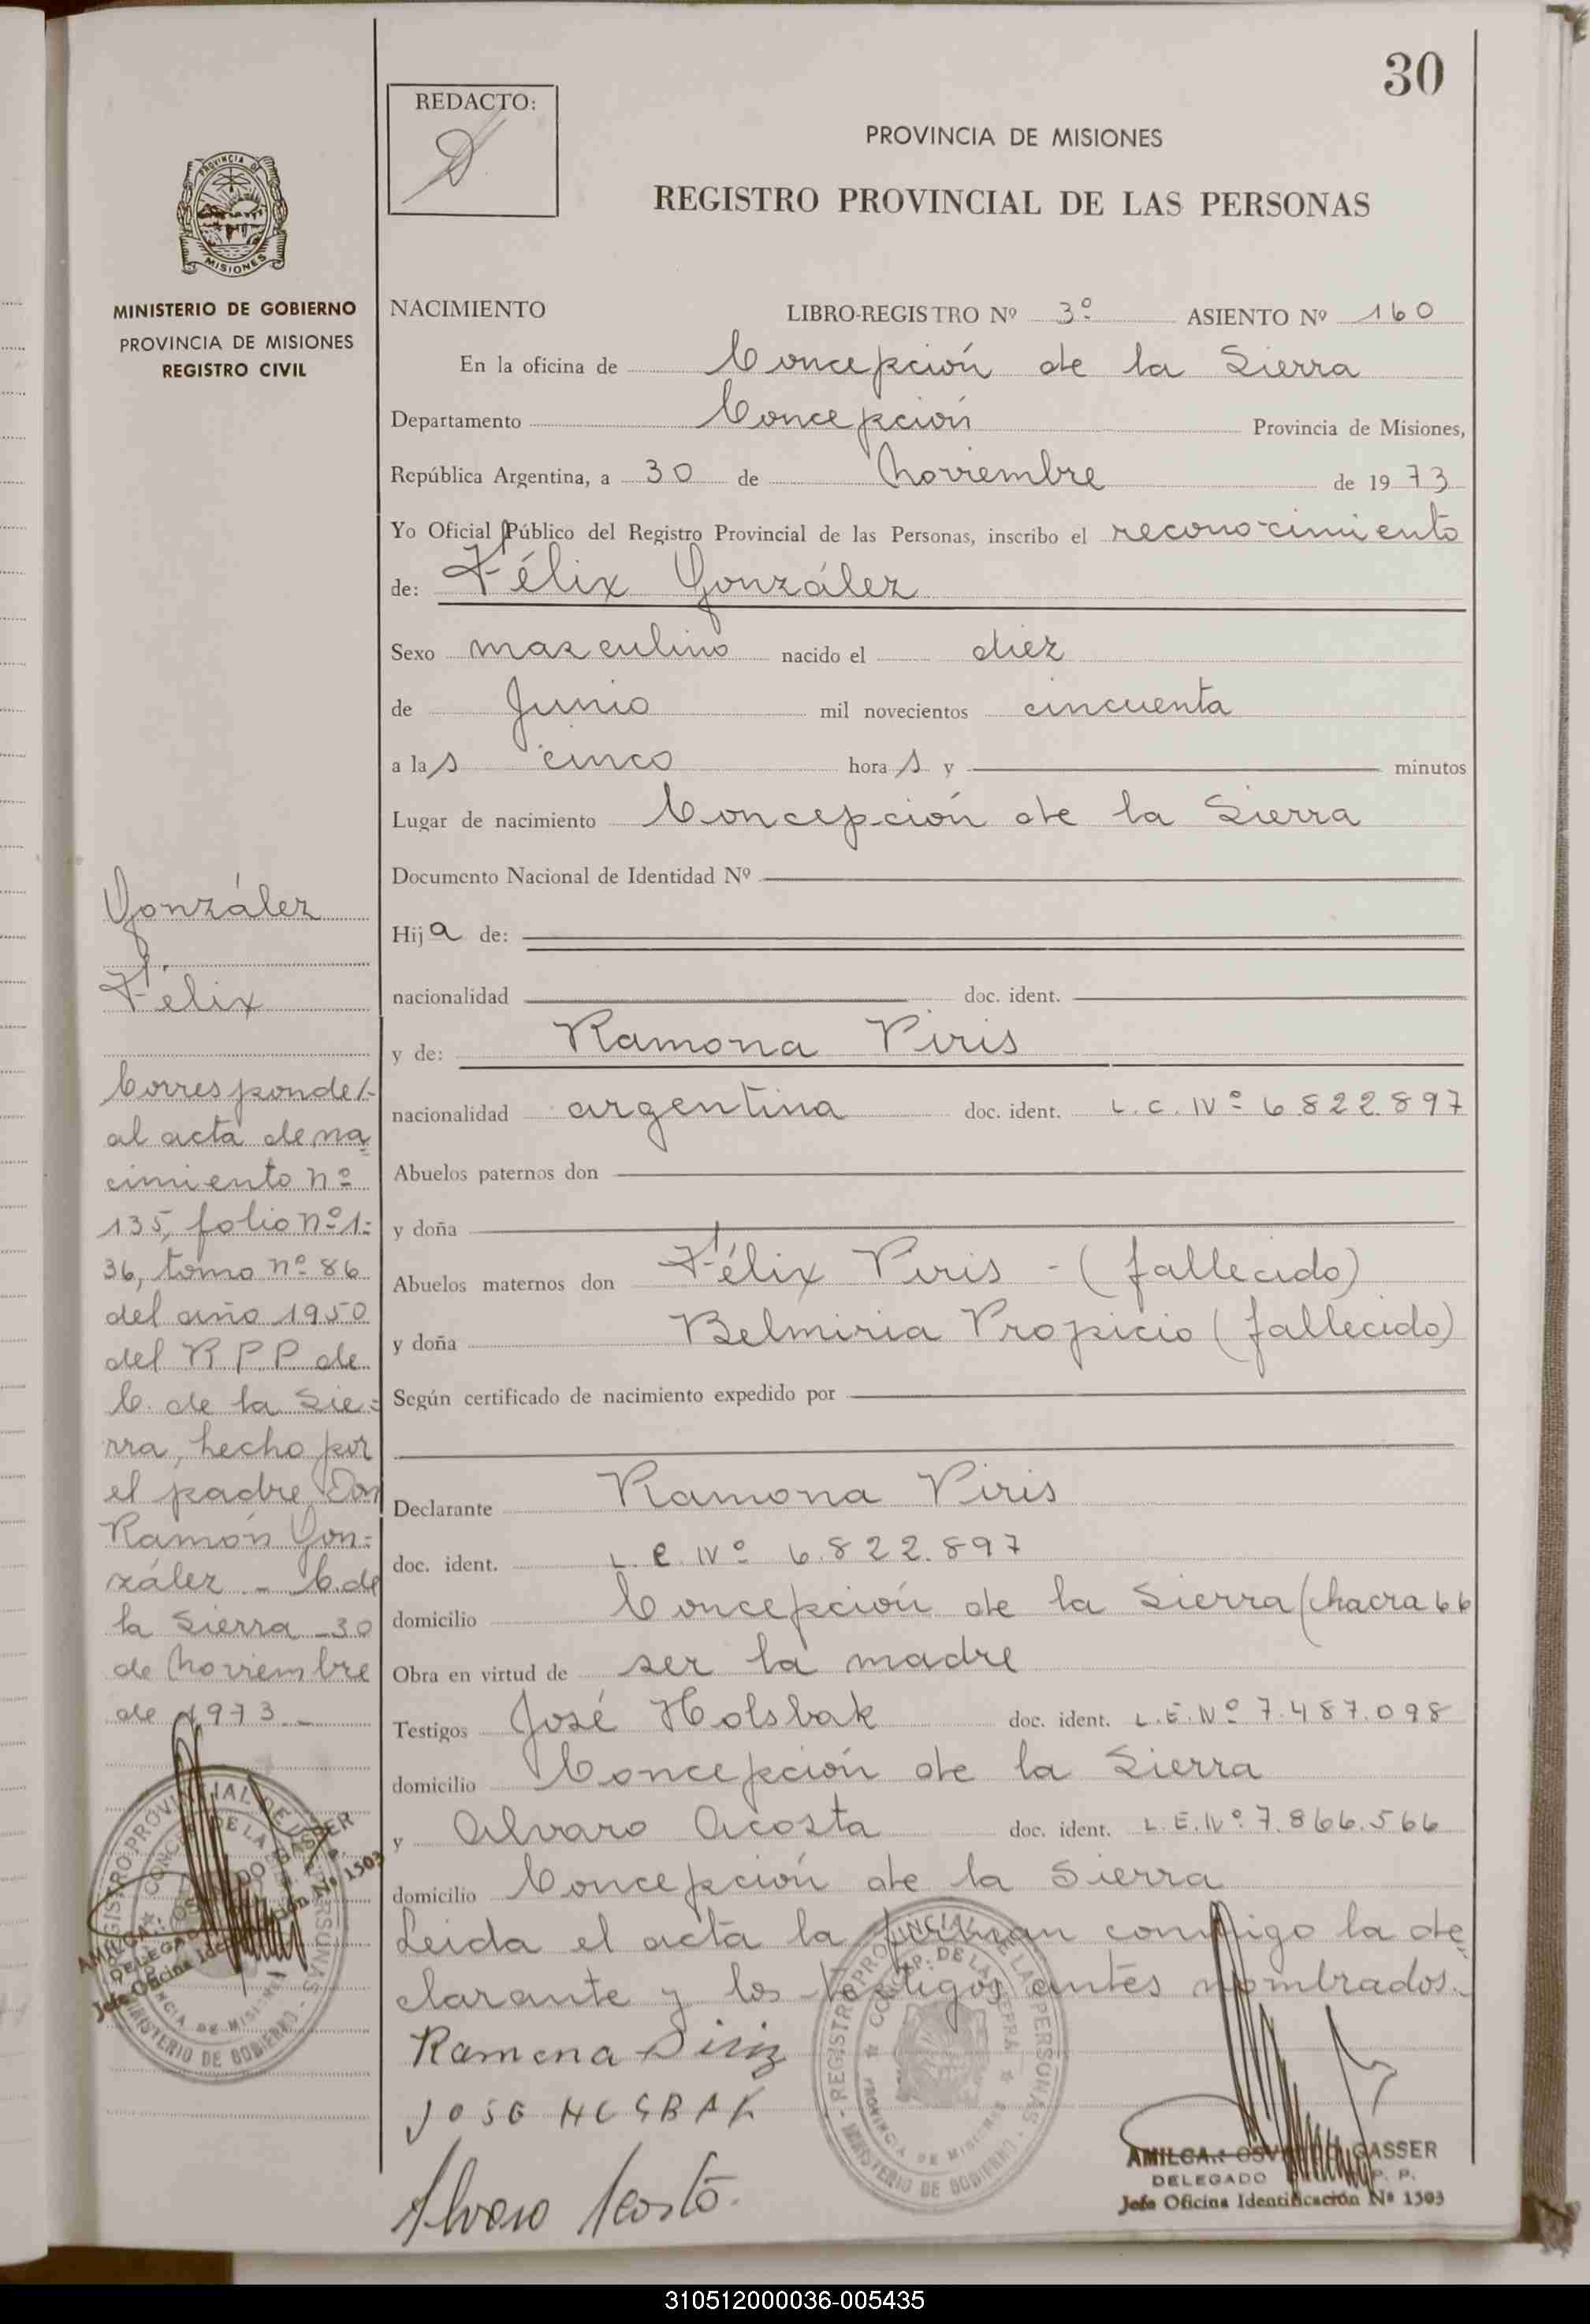 30
REDACTO:
PROVINCIA DE MISIONES
REGISTRO PROVINCIAL DE LAS PERSONAS
PROVINCIA DE
MISIONES
MINISTERIO DE GOBIERNO
PROVINCIA DE MISIONES
REGISTRO CIVIL
NACIMIENTO LIBRO-REGISTRO Nº 3º ASIENTO Nº 160
En la oficina de Concepción de la Sierra
Departamento Concepción Provincia de Misiones,
República Argentina, a 30 de Noviembre de 1973
Yo Oficial Público del Registro Provincial de las Personas, inscribo el reconocimiento
de: Félix González
Sexo masculino nacido el diez
de Junio mil novecientos cincuenta
a las cinco horas y minutos
Lugar de nacimiento Concepción de la Sierra
Documento Nacional de Identidad Nº
Hija de:
nacionalidad doc. ident.
y de: Ramona Piris
nacionalidad argentina doc. ident. L.C. Nº 6.822.897
Abuelos paternos don
y doña
Abuelos maternos don Félix Piris - (fallecido)
y doña Belmiria Propicio (fallecido)
Según certificado de nacimiento expedido por
Declarante Ramona Piris
doc. ident. L.C. Nº 6.822.897
domicilio Concepción de la Sierra (chacra 66
Obra en virtud de ser la madre
Testigos José Holsbak doc. ident. L.E. Nº 7.487.098
domicilio Concepción de la Sierra
y Alvaro Acosta doc. ident. L.E. Nº 7.866.566
domicilio Concepción de la Sierra
Leida el acta la firman conmigo la de
clarante y los testigos antes nombrados.
Ramona Piriz
Alvaro Acosta.
González
Félix
Corresponde/-
al acta de na
cimiento nº
135, folio nº 1=
36, tomo nº 86
del año 1950
del R P P de
C. de la Sie=
rra, hecho por
el padre Don
Ramón Gon=
zález - C. de
la Sierra - 30
de Noviembre
de 1973 -
REGISTRO PROVINCIAL DE LAS PERSONAS
MINISTERIO DE GOBIERNO
PROVINCIA DE MISIONES
GASSER
DELEGADO
Jefe Oficina Identificación Nº 1503
REGISTRO PROVINCIAL DE LAS PERSONAS
CONCEP. DE LA SIERRA
PROVINCIA DE MISIONES
MINISTERIO DE GOBIERNO
GASSER
DELEGADO P. P.
Jefe Oficina Identificación Nº 1503
310512000036-005435